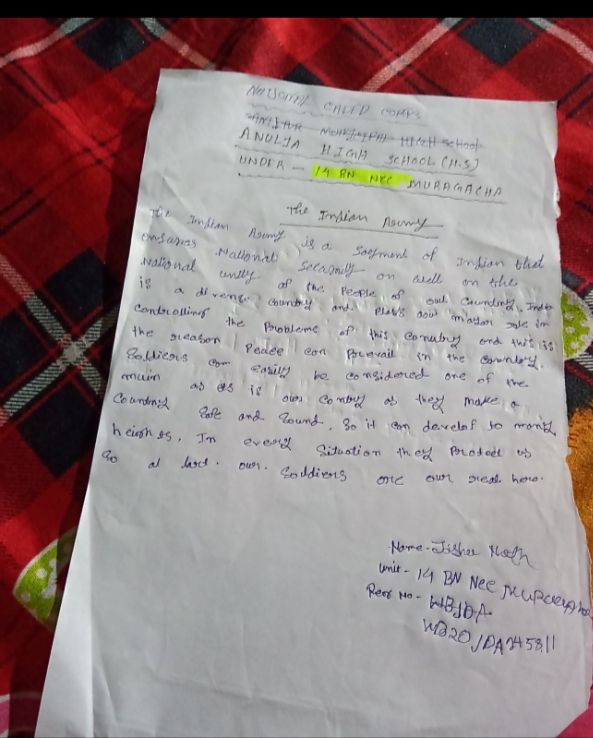 NATIONAL CALED CORPS
HIGH School
ANULIA HIGH SCHOOL (H.S)
UNDER - 14 BN NCC MURAGACHA
The Indian Army
The Indian Army is a Segment of Indian that
ensures National Secaority as well on the
National unity of the People of our Country. India
is a diverse country and plays our major role in
controlling the Problems of this Conutry and this is
the reason Peace can Prevail in the Country.
Soldiers can easily be considered one of the
main as is our Contry as they make a
Country Safe and Sound. So it can develop to many
heights. In every Situation they Protect us
So at last. our. Soldiers are our real hero.
Name - Nath
Unit - 14 BN NCC
Regt No - WBJDA